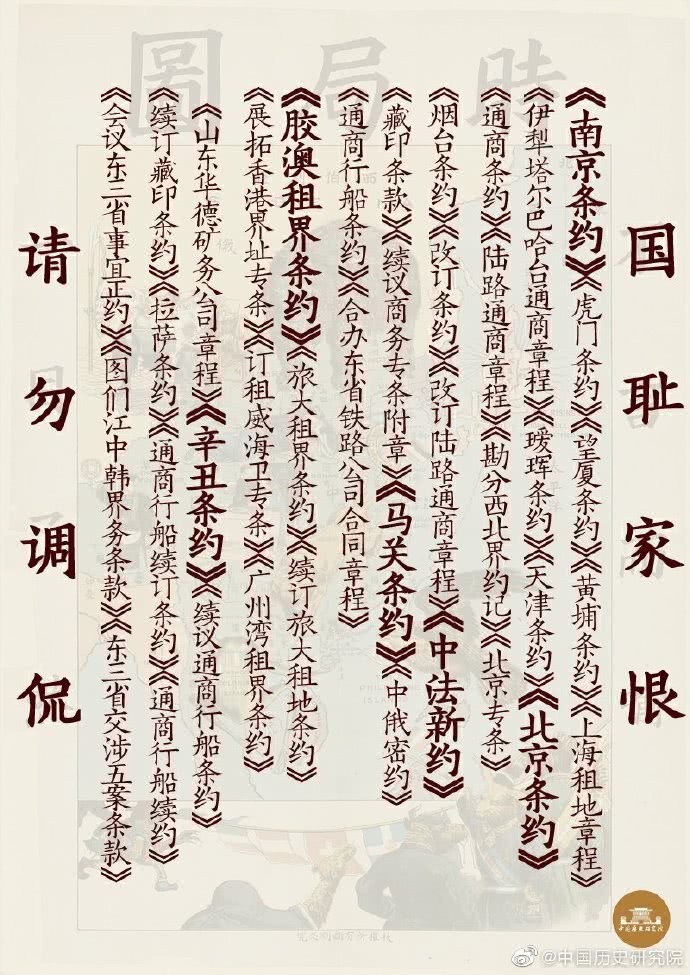 時局圖
国耻家恨
《南京条约》《虎门条约》《望厦条约》《黄埔条约》《上海租地章程》
《伊犁塔尔巴哈台通商章程》《瑷珲条约》《天津条约》《北京条约》
《通商条约》《陆路通商章程》《勘分西北界约记》《北京专条》
《烟台条约》《改订条约》《改订陆路通商章程》《中法新约》
《藏印条款》《续议商务专条附章》《马关条约》《中俄密约》
《通商行船条约》《合办东省铁路公司合同章程》
《胶澳租界条约》《旅大租界条约》《续订旅大租地条约》
《展拓香港界址专条》《订租威海卫专条》《广州湾租界条约》
《山东华德矿务公司章程》《辛丑条约》《续议通商行船条约》
《续订藏印条约》《拉萨条约》《通商行船续订条约》《通商行船续约》
《会议东三省事宜正约》《图们江中韩界务条款》《东三省交涉五案条款》
请勿调侃
中国历史研究院
@中国历史研究院